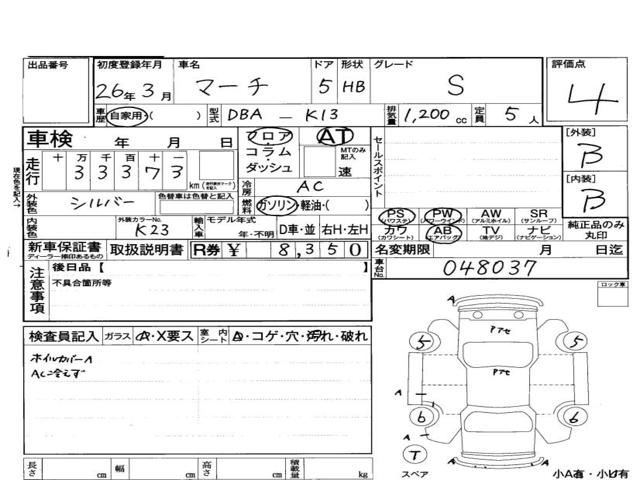 出品番号 初度登録年月 車名 ドア 形状 グレード 評価点
26年3月 マーチ 5 HB S 4
車歴 自家用・( ) 型式 DBA - K13 排気量 1,200 cc 定員 5人
車検 年 月 日 フロア コラム・ダッシュ AT MTのみ記入 速 セールスポイント [外装] B
走行 十 万 千 百 十 一
3 3 3 7 3 km
現在色を記入→
外装色 シルバー 色替車は色替と記入 冷房 AC [内装] B
燃料 ガソリン・軽油・( )
内装色 外装カラーNo. K23 輸入車 モデル年式 年・不明 D車・並 右H・左H
PS (パワステ) PW (パワーウインド) AW (アルミホイル) SR (サンルーフ)
カワ (カワシート) AB (エアバッグ) TV (地デジ) ナビ (ナビゲーション) 純正品のみ丸印
新車保証書 ディーラー捺印あるもの 取扱説明書 R券 ¥ 8,350 名変期限 月 日迄
注意事項 後日品【 】 車台No. 048037
不具合箇所等
ロック車
検査員記入 ガラス A・X要ス 室内シート A・コゲ・穴・汚れ・破れ
ホイルカバーA
ACミ冷えず
A
Pアセ
5 5
Pアセ
A
6 6
A
T
スペア
A
小A有・小U有
長さ cm 幅 cm 高さ cm 積載量 kg